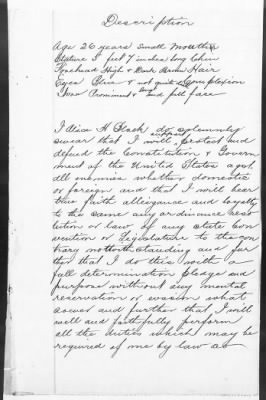 Description
Age 26 years Small Mouth
Stature 5 feet 7 inches long Chin
Forehead High & Dark Brown Hair
Eyes Blue & not quite Complexion
Nose Prominent & and full face
I H Black do solemnly
swear that I will support protect and
defend the Constitution & Govern
ment of the United States agst
all enemies whether domestic
or foreign and that I will bear
true faith allegiance and loyalty
to the same any ordinance reso
lution or law of any State Con
vention or Legislature to the con
trary notwithstanding and fur
ther that I do this with a
full determination pledge and
purpose without any mental
reservation or evasion what
soever and further that I will
well and faithfully perform
all the duties which may be
required of me by law as